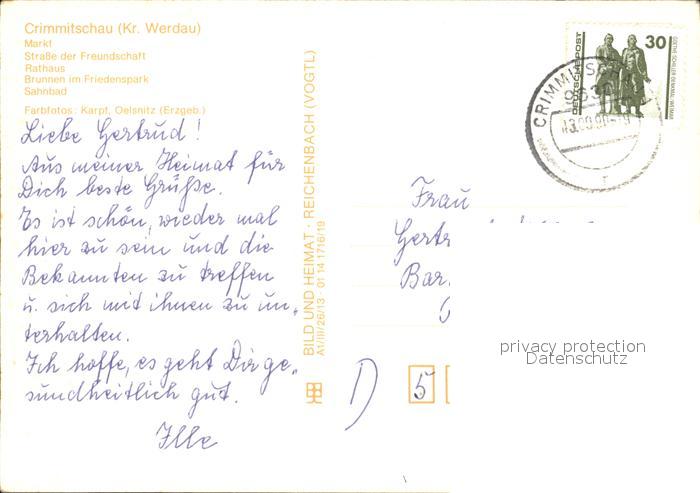 Crimmitschau (Kr. Werdau)
Markt
Straße der Freundschaft
Rathaus
Brunnen im Friedenspark
Sahnbad
Farbfotos: Karpf, Oelsnitz (Erzgeb.)
Liebe Gertrud!
Aus meiner Heimat für
Dich beste Grüße.
Es ist schön, wieder mal
hier zu sein und die
Bekannten zu treffen
u. sich mit ihnen zu un-
terhalten.
Ich hoffe, es geht Dir ge-
sundheitlich gut.
Ille
BILD UND HEIMAT · REICHENBACH (VOGTL)
A1/III/26/13 · 01 14 1716/19
DEUTSCHE POST
30
GOETHE-SCHILLER-DENKMAL · WEIMAR
Frau
Gertr
Bar.
D
5
privacy protection
Datenschutz